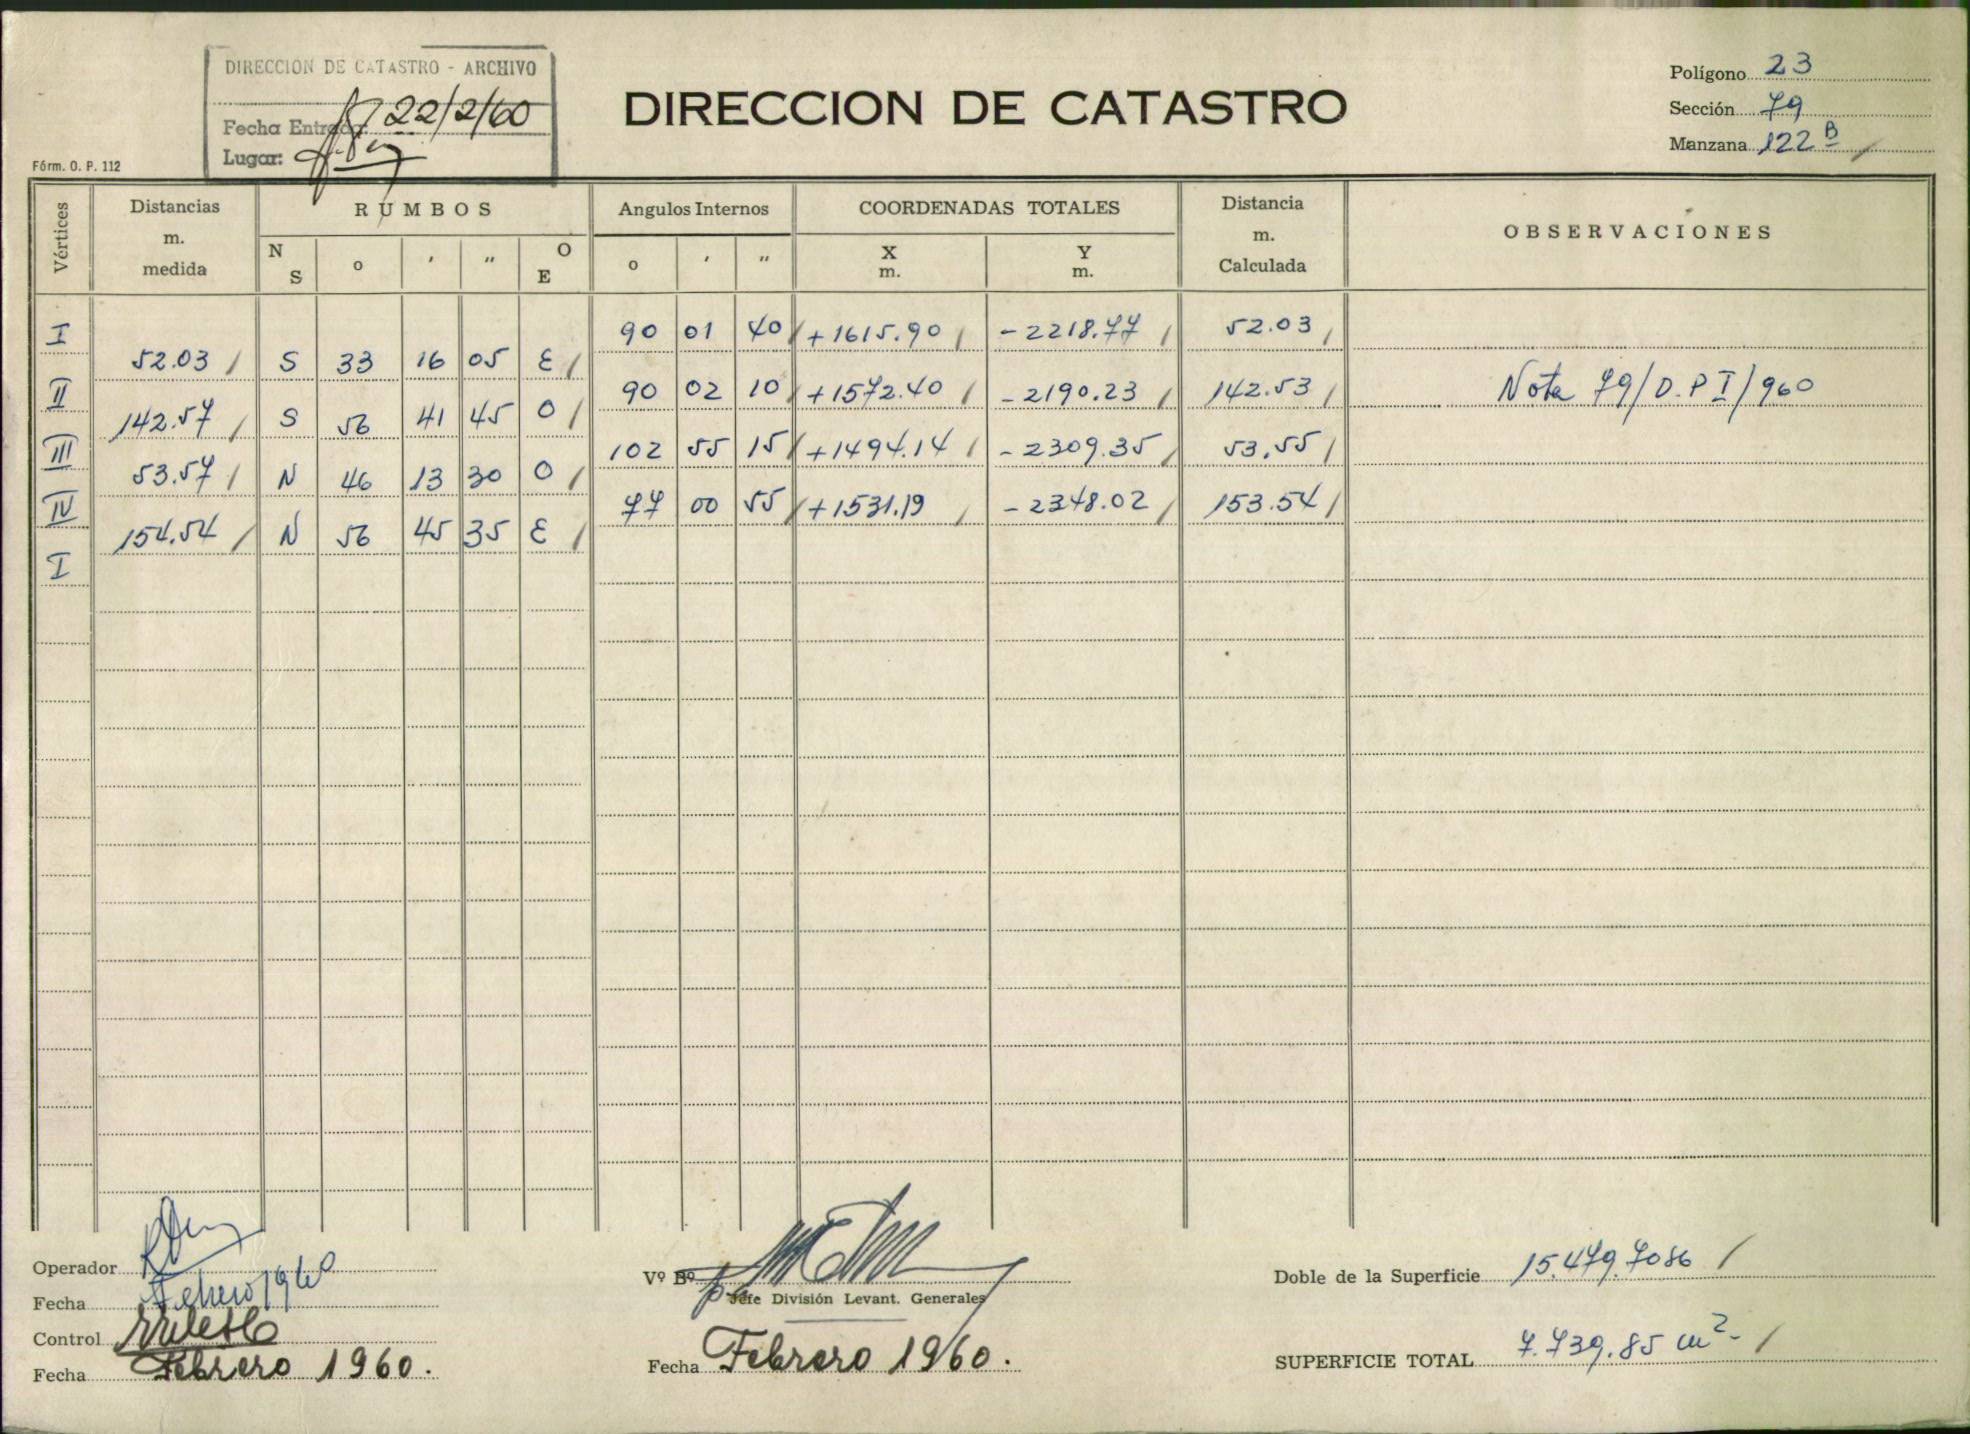 DIRECCION DE CATASTRO - ARCHIVO
Fecha Entrada 22/2/60
Lugar:
Fórm. O. P. 112
DIRECCION DE CATASTRO
Polígono 23
Sección 79
Manzana 122 B /
Vértices
Distancias m. medida
RUMBOS
N S o ' " O E
Angulos Internos
o ' "
COORDENADAS TOTALES
X m. Y m.
Distancia m. Calculada
OBSERVACIONES
I 90 01 40 / +1615.90 / -2218.77 / 52.03 /
52.03 / S 33 16 05 E /
II 90 02 10 / +1572.40 / -2190.23 / 142.53 / Nota 79/D.P I/960
142.57 / S 56 41 45 O /
III 102 55 15 / +1494.14 / -2309.35 / 53.55 /
53.57 / N 46 13 30 O /
IV 77 00 55 / +1531.19 / -2348.02 / 153.54 /
154.54 / N 56 45 35 E /
I
Operador
Fecha Febrero 1960
Control
Fecha Febrero 1960.
Vº Bº
Jefe División Levant. Generales
Fecha Febrero 1960.
Doble de la Superficie 15.479.7086 /
SUPERFICIE TOTAL 7.739.85 m2- /